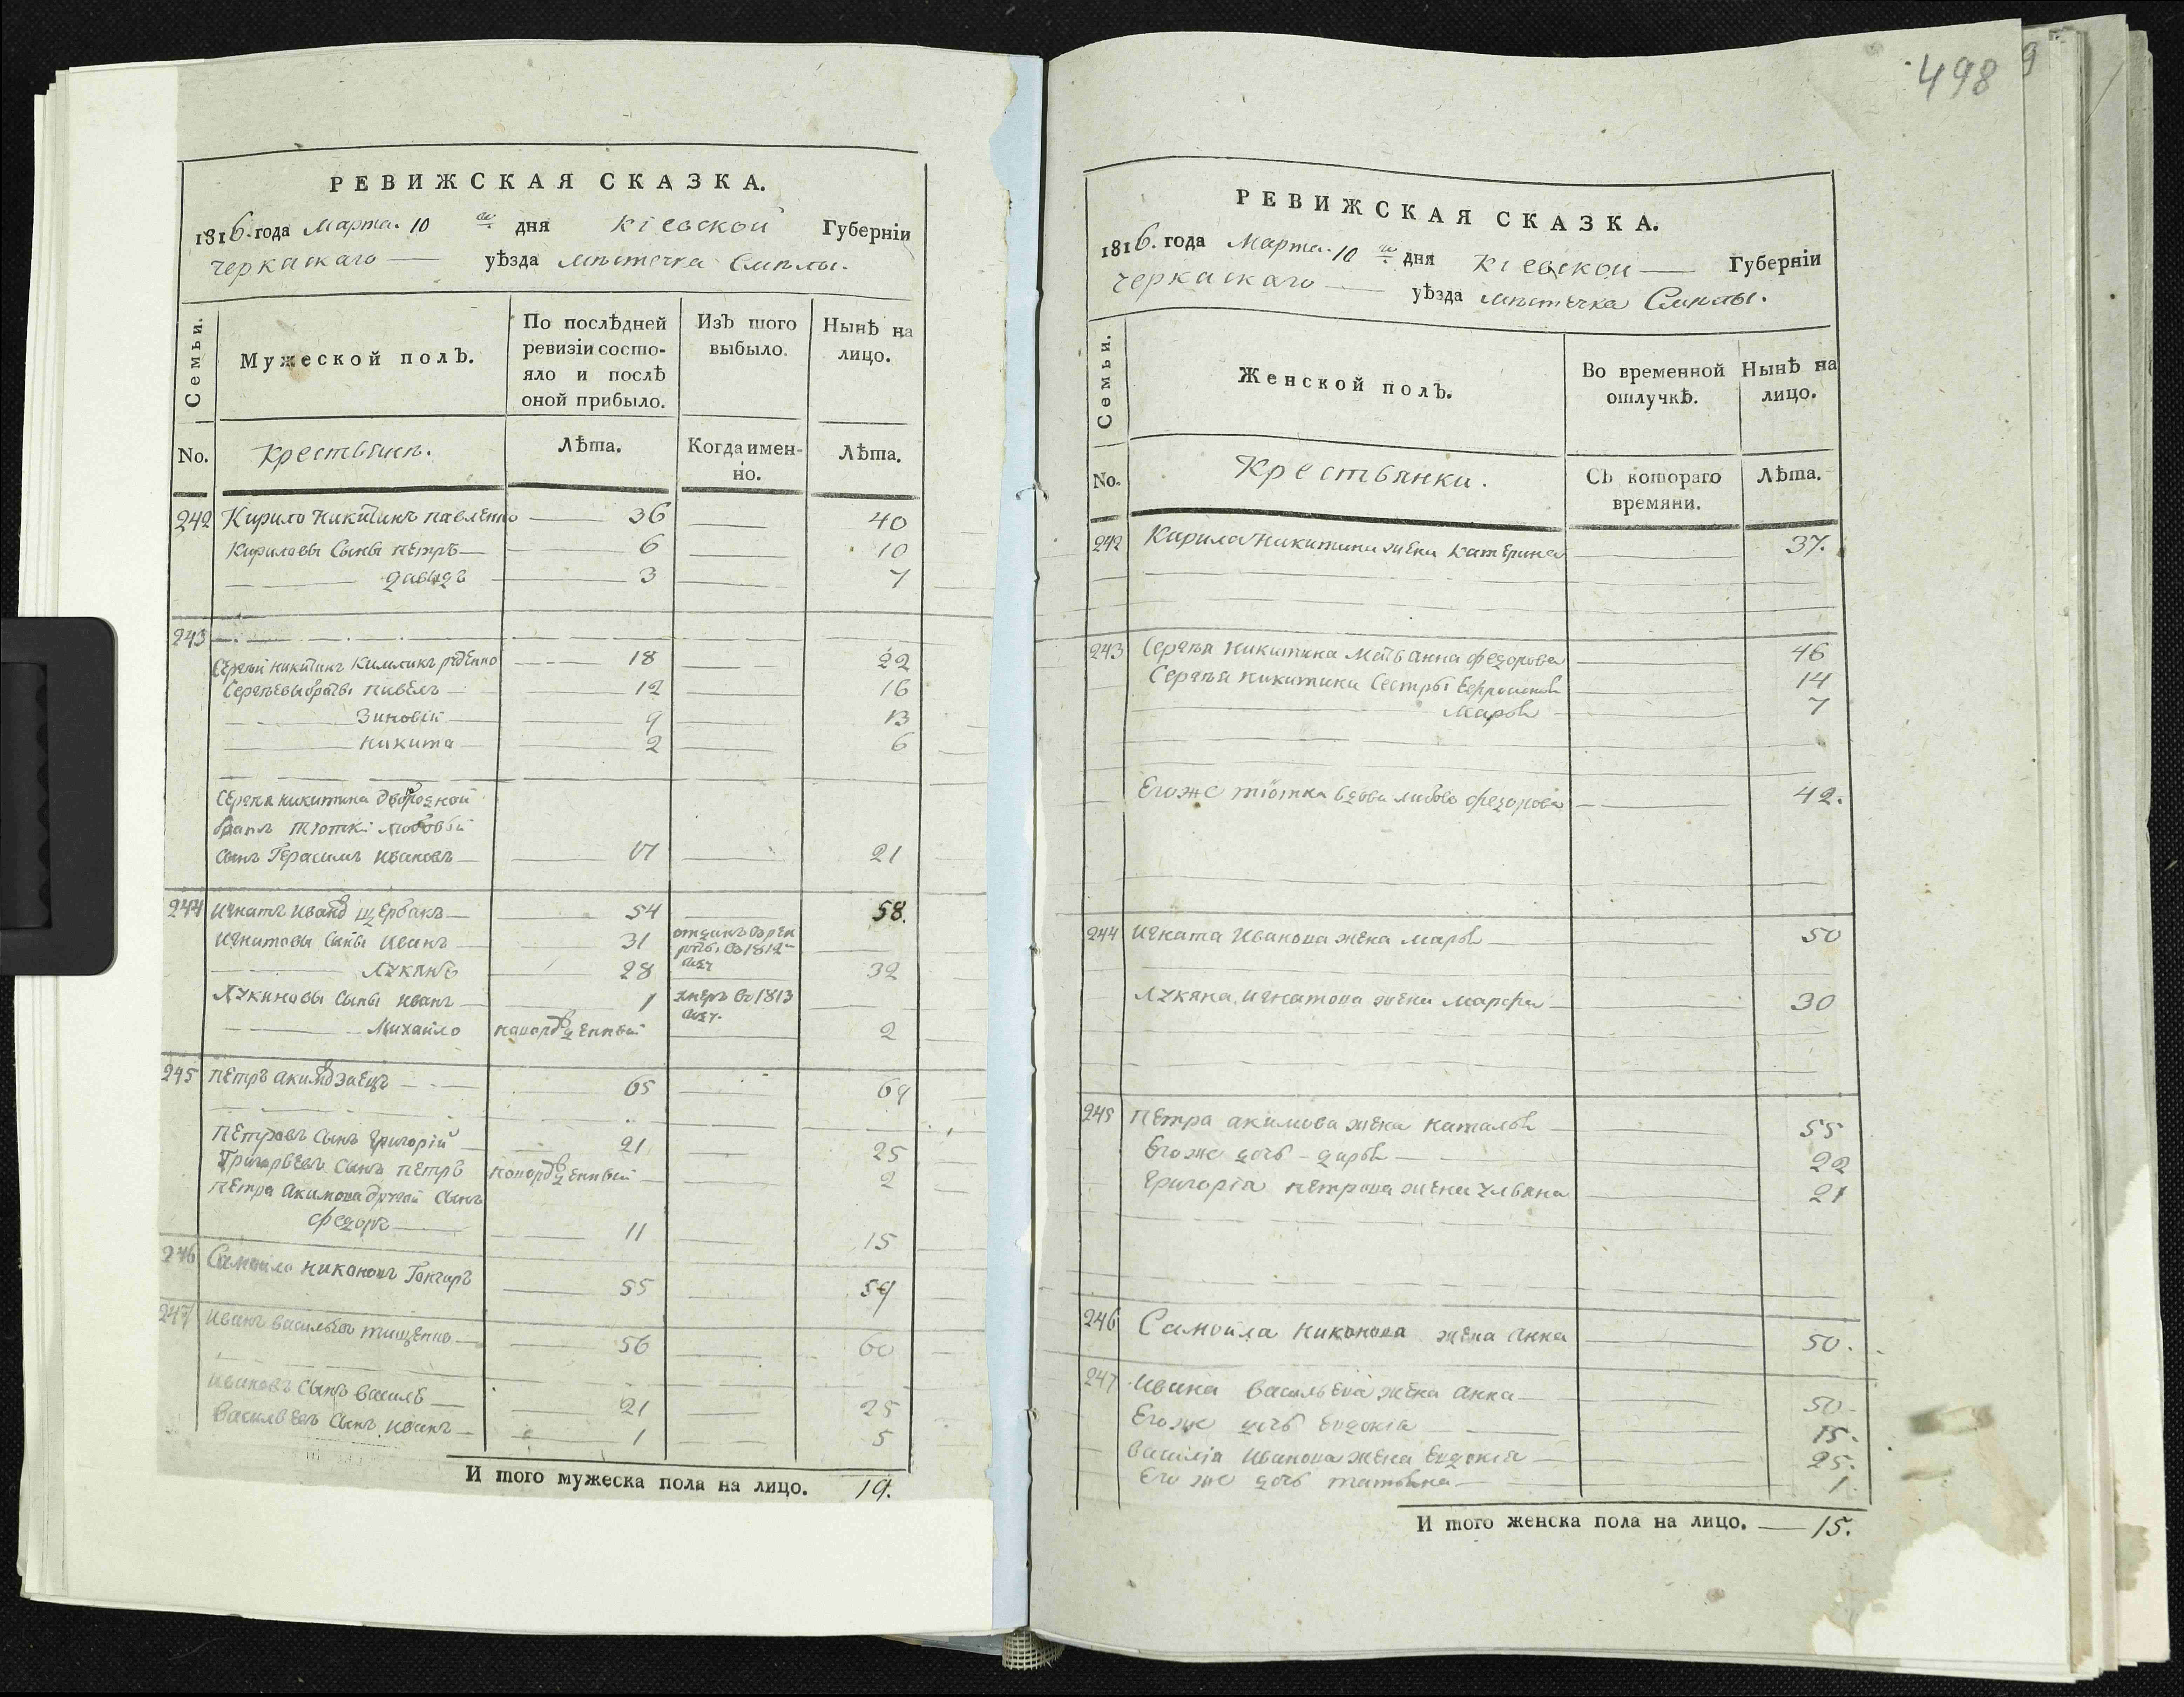 498
РЕВИЖСКАЯ СКАЗКА.
1816. года Марта. 10 го дня Кіевской Губерніи
Черкаскаго уѣзда мѣстечка Смѣлы.
Семьи.
Мужеской полъ.
По послѣдней ревизіи состояло и послѣ оной прибыло.
Изъ того выбыло.
Нынѣ на лицо.
No. Крестьянъ. Лѣта. Когда именно. Лѣта.
242 Кирило Никитинъ Павленко 36 40
Кириловы Сыны Петръ 6 10
Давыдъ 3 7
243
Сергѣй Никитинъ 18 22
Сергѣевы братьи Павелъ 12 16
Зиновій 9 13
Никита 2 6
Сергѣя Никитина двоюродной
братъ тіотки Любовьи
сынъ Герасимъ Ивановъ 17 21
244 Игнатъ Ивановъ Щербакъ 54 58.
Игнатовы Сыны Иванъ 31 отданъ въ рекруты въ 1812 году
Лукянъ 28 32
Лукяновы Сыны Иванъ 1 умеръ въ 1813 году
Михайло новорожденный 2
245 Петръ Акимовъ Заецъ 65 69
Петровъ Сынъ Григорій 21 25
Григорьевъ Сынъ Петръ новорожденный 2
Петра Акимова другой Сынъ
Федоръ 11 15
246 Самойло Никоновъ Гончаръ 55 59
247 Иванъ Васильевъ Тищенко 56 60
Ивановъ Сынъ Василь 21 25
Васильевъ Сынъ Иванъ 1 5
И того мужеска пола на лицо. 19.
РЕВИЖСКАЯ СКАЗКА.
1816. года Марта. 10 го дня Кіевской Губерніи
Черкаскаго уѣзда мѣстечка Смѣлы.
Семьи.
Женской полъ.
Во временной отлучкѣ.
Нынѣ на лицо.
No. Крестьянки. Съ котораго времяни. Лѣта.
242 Кирила Никитина жена Катерина 37.
243 Сергѣя Никитина Мать Анна Федорова 46
Сергѣя Никитина Сестры Ефросинья 14
Марья 7
Егоже тіотка вдова Любовь Федорова 42.
244 Игната Иванова жена Марья 50
Лукяна Игнатова жена Марфа 30
245 Петра Акимова жена Наталья 55
Егоже дочь Дарья 22
Григорія Петрова жена Ульяна 21
246 Самойла Никонова жена Анна 50.
247 Ивана Васильева жена Анна 50
Егоже дочь Евдокія 15.
Василія Иванова жена Евдокія 25.
Его же дочь Татьяна 1.
И того женска пола на лицо. 15.